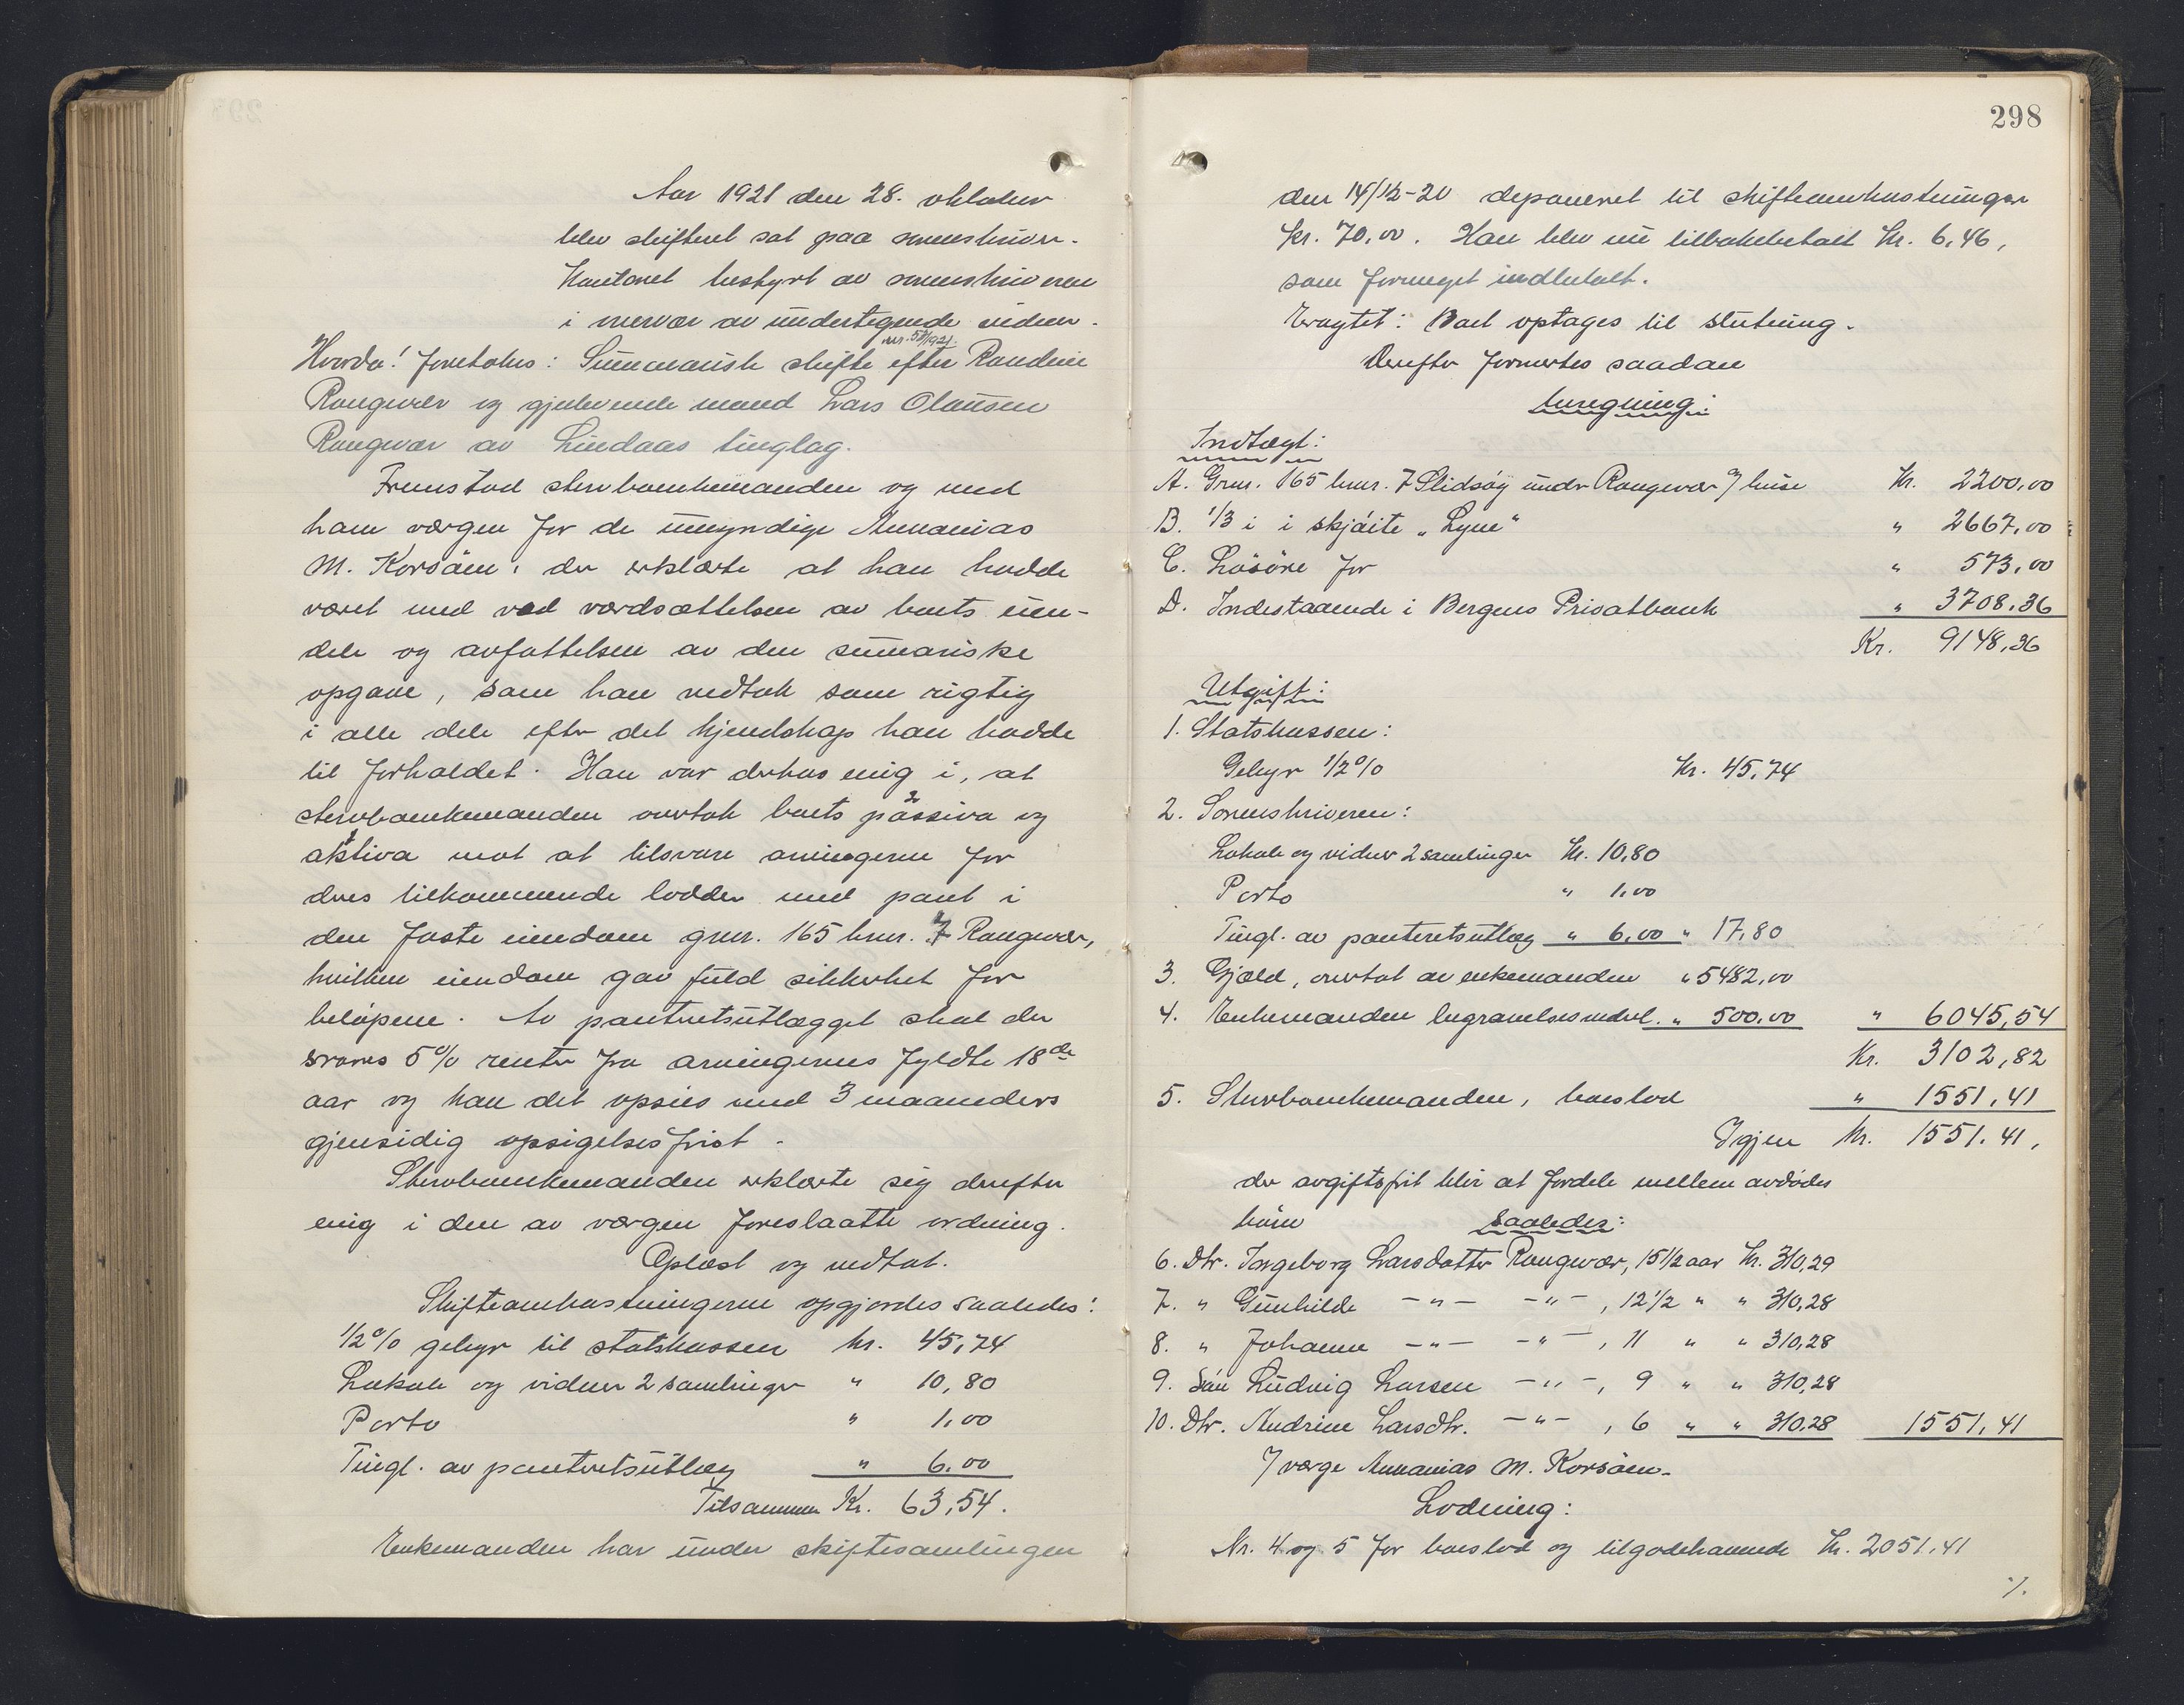 Aar 1921 den 28. oktober
blev skifteret sat paa sorenskriver-
kontoret bestyrt av sorenskriveren
i nærvær av undertegnede vidner.
nr. 53/1921.
Hvorda! foretokes: Summarisk skifte efter Randine
Rongevær og gjenlevende mand Lars Olausen
Rongevær av Lindaas tinglag.
Fremstod stervboenkemanden og med
ham værgen for de umyndige Annanias
M. Korsöen, der erklærte at han hadde
været med ved værdsættelsen av boets eien-
dele og avfattelsen av den summariske
opgave, som han vedtok som rigtig
i alle dele efter det kjendskap han hadde
til forholdet. Han var derhos enig i, at
stervboenkemanden overtok boets passiva og
aktiva mot at tilsvare arvingerne for
deres tilkommende lodder med pant i
den faste eiendom gnr. 165 bnr. 7 Rongevær,
hvilken eiendom gav fuld sikkerhet for
beløpene. Av panteretsutlægget skal der
svares 5% renter fra arvingernes fyldte 18de
aar og kan det opsies med 3 maaneders
gjensidig opsigelsesfrist.
Stervboenkemanden erklærte sig derefter
enig i den av værgen foreslaatte ordning.
Oplæst og vedtat.
Skifteomkostningerne opgjordes saaledes:
1/2% gebyr til statskassen kr. 45,74
Lokale og vidner 2 samlinger " 10,80
Porto " 1,00
Tingl. av panteretsutlæg " 6,00
Tilsammen Kr. 63,54.
Enkemanden har under skiftesamlingen
298
den 14/12-20 deponeret til skifteomkostninger
kr. 70,00. Han blev nu tilbakebetalt kr. 6,46,
som formeget indbetalt.
Eragtet: Boet optages til slutning.
Derefter formertes saadan
beregning:
Indtægt:
A. Gnr. 165 bnr. 7 Slidsöy under Rongevær m/ huse Kr. 2200,00
B. 1/3 i i skjöite „Lyne“ " 2667,00
C. Lösöre for " 573,00
D. Indestaaende i Bergens Privatbank " 3708,36
Kr. 9148,36
Utgift:
1. Statskassen:
Gebyr 1/2% Kr. 45,74
2. Sorenskriveren:
Lokale og vidner 2 samlinger Kr. 10,80
Porto " 1,00
Tingl. av panteretsutlæg " 6,00 " 17,80
3. Gjæld, overtat av enkemanden " 5482,00
4. Enkemanden begravelsesutgl. " 500,00 " 6045,54
Kr. 3102,82
5. Stervboenkemanden, boeslod " 1551,41
Igjen kr. 1551,41,
der avgiftsfrit blir at fordele mellem avdödes
börn saaledes:
6. Dtr. Ingeborg Larsdatter Rongevær, 15 1/2 aar Kr. 310,29
7. " Gunhilde -"- -"-, 12 1/2 " " 310,28
8. " Johanne -"- -"-, 11 " " 310,28
9. Sön Ludvig Larsen -"-, 9 " " 310,28
10. Dtr. Andrine Larsdtr. -"-, 6 " " 310,28 1551,41
/ værge Annanias M. Korsöen.
Lodning:
Nr. 4 og 5 for boeslod og tilgodehavende Kr. 2051,41
./.